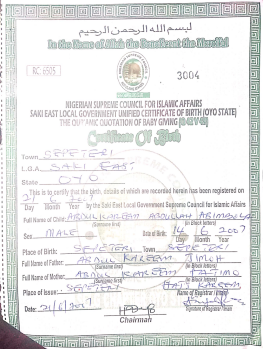 بسم الله الرحمن الرحيم
In the Name of Allah the Beneficent the Merciful
RC 6505
3004
NIGERIAN SUPREME COUNCIL FOR ISLAMIC AFFAIRS
SAKI EAST LOCAL GOVERNMENT UNIFIED CERTIFICATE OF BIRTH (OYO STATE)
THE QUR'ANIC QUOTATION OF BABY GIVING
Certificate Of Birth
Town SEPETERI
L.G.A. SAKI EAST
State OYO
This is to certify that the birth, details of which are recorded herein has been registered on
21 by the Saki East Local Government Supreme Council for Islamic Affairs
Day Month Year
Full Name of Child: ABDULKAREEM ABDULLAH
(Surname first) (in Block letters)
Sex MALE Date of Birth: 14 6 2007
Day Month Year
Place of Birth: SEPETERI Town SEPETERI
Full Name of Father: ABDULKAREEM
(Surname first) (in Block letters)
Full Name of Mother: ABDULKAREEM
(Surname first) (in Block letters)
Place of Issue: SEPETERI KAREEM
Name of Registrar
Date: 21/6/2007
Signature of Registrar
Chairman